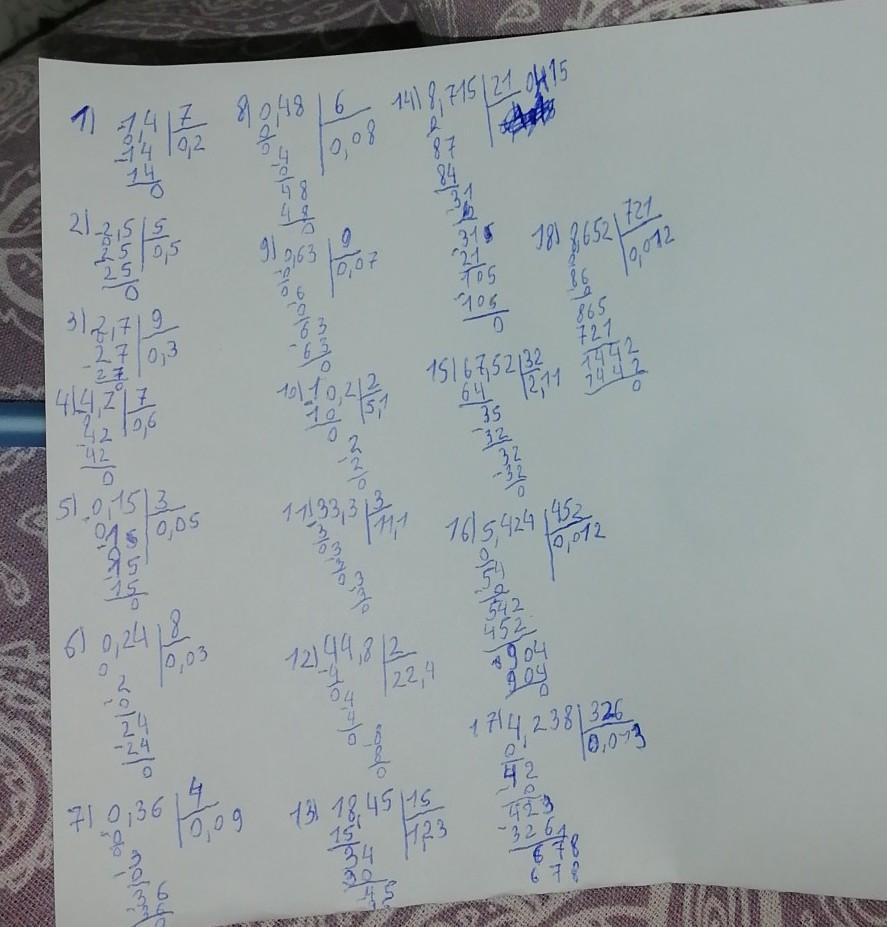 1) 1,4 | 7
0,2
14
14
0
2) 2,5 | 5
0,5
25
25
0
3) 2,7 | 9
0,3
27
27
0
4) 4,2 | 7
0,6
42
42
0
5) 0,15 | 3
0,05
01
15
15
0
6) 0,24 | 8
0,03
0
2
0
24
24
0
7) 0,36 | 4
0,09
0
3
0
36
36
0
8) 0,48 | 6
0,08
0
0
4
0
48
48
0
9) 0,63 | 9
0,07
0
6
0
63
63
0
10) 10,2 | 2
5,1
10
0
2
2
0
11) 33,3 | 3
11,1
3
03
3
0
3
3
0
12) 44,8 | 2
22,4
4
04
4
0
8
8
0
13) 18,45 | 15
1,23
15
34
30
45
14) 8,715 | 21 0,415
87
84
31
315
21
105
105
0
15) 67,52 | 32
2,11
64
35
32
32
32
0
16) 5,424 | 452
0,012
0
54
0
542
452
904
904
0
17) 4,238 | 326
0,013
0
42
0
423
326
678
678
18) 8,652 | 721
0,012
86
0
865
721
1442
1442
0